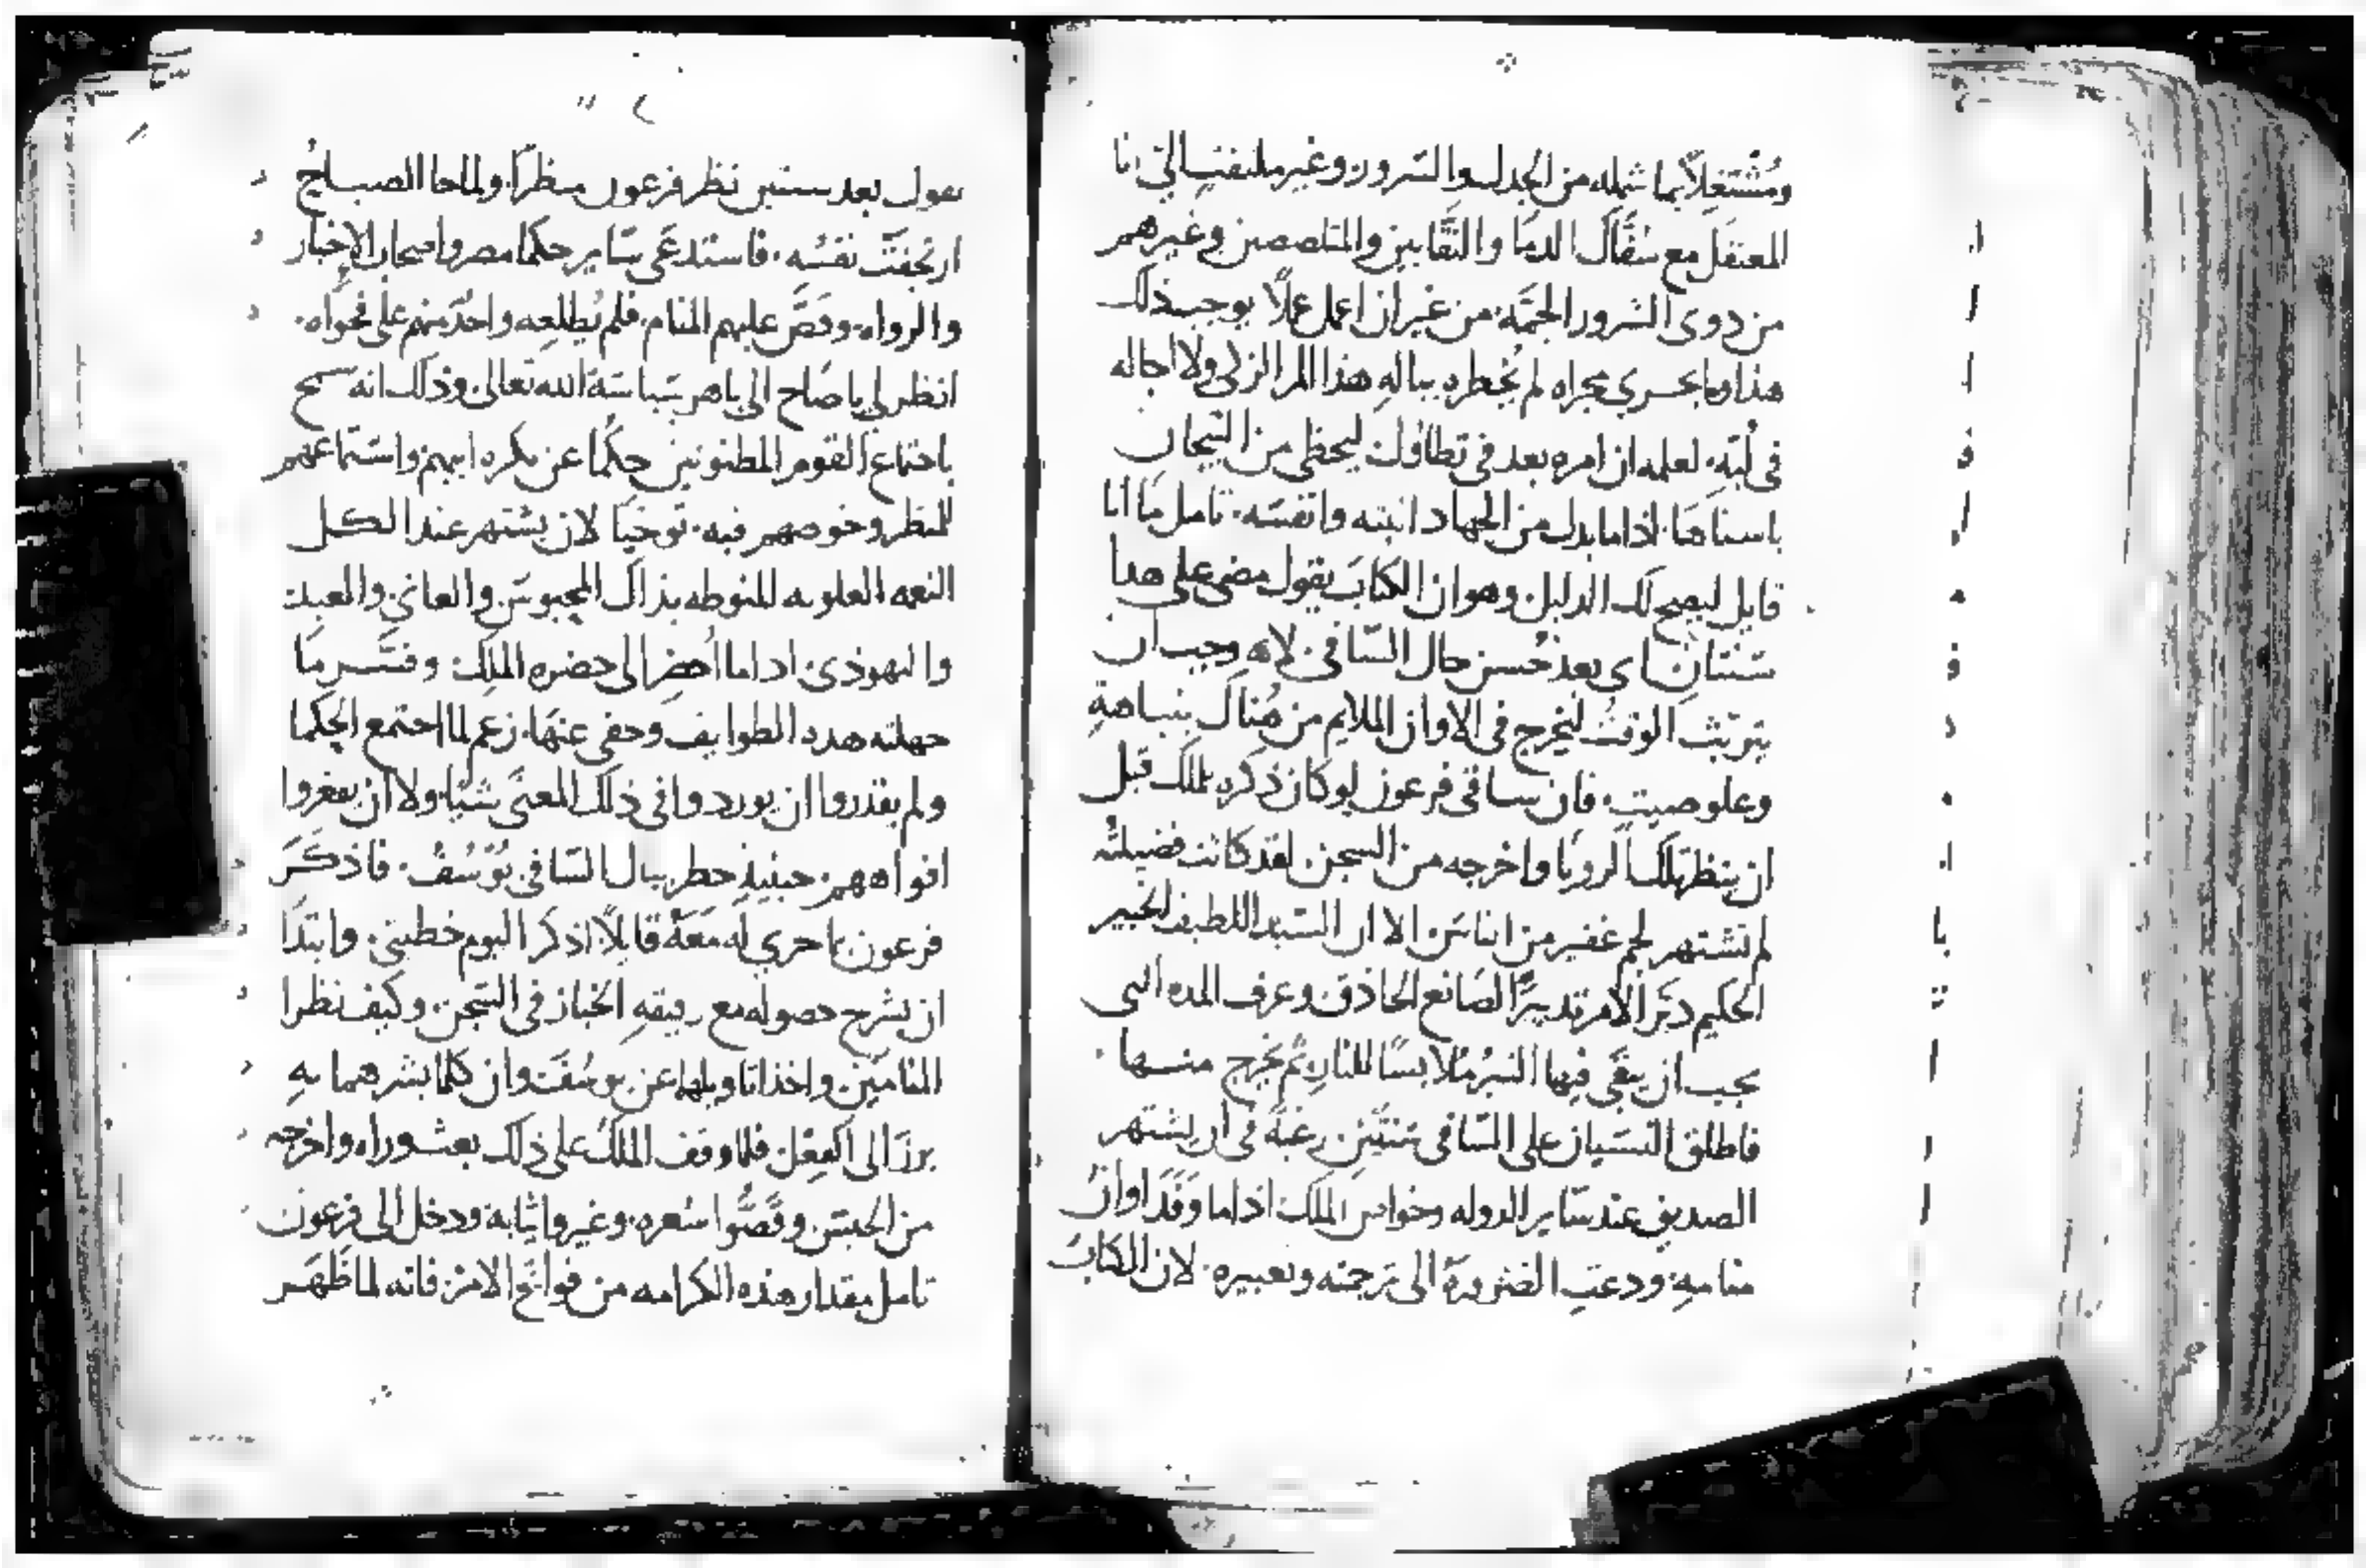 ومُشتغلاً بما شمله من الجدل والسرور وغير ملتفت الي انا
المعتقل مع سفاك الدما والنقابين والمتلصصين وغيرهم
من دوي الشرور الجمّه من غير ان اعمل عملاً يوجب ذلك
هذا وما يجري مجراه لم يُخطره بباله هذا المر الزلي ولا اجاله
في لُبّه لعلمه ان امره بعد في تطاول ليحظي من التيجان
باسناها اذا ما بدل من الجهاد انبته وانفسه تامل ما انا
قايل ليصح لك الدليل وهو ان الكتاب يقول مضي علي هدا
سنتان اي بعد حُسن حال السّاقي لانه وجب ان
يتريث الوقت ليخرج في الاوان الملايم من هُناك بنباهةٍ
وعلو صيت فان ساقي فرعون لو كان ذكره للملك قبل
ان ينظر تلك الرويا واخرجه من السجن لقد كانت فضيلته
لم تشتهر لجم غفير من اناس الا ان السيد اللطيف الخبير
الحكيم دبّر الامر تدبيرًا الصانع الحاذق وعرف المده التي
يجب ان يبقي فيها التبر مُلابسًا للنار ثم يخرج منها
فاطلق النسيان علي السّاقي سنتين رغبة في ان يشتهر
الصديق عند ساير الدوله وخواص الملك اذا ما وفد اوان
منامهِ ودعت الضرورة الي ترجمته وتعبيره لان الكتاب
يقول بعد سنتين نظر فرعون منظرًا ولما جا الصباح
ارتجفت نفسه فاستدعي ساير حكما مصر واصحاب الاخبار
والرواه وقصّ عليهم المنام فلم يُطلعه واحد منهم علي فحواه
انظر لي يا صاح الي باهر سياسة الله تعالي وذلك انه سمح
باجتماع القوم المظنونين حكما عن بكره ابيهم واستماعهم
للمنظر وخوضهم فيه توخيًا لان يشتهر عند الكل
النعمه العلويه المنوطه بذاك المحبوس والعاني والعبد
واليهوذي اذا ما أحضر الي حضره الملك وفسّر ما
جهلته هده الطوايف وخفي عنها زعم لما اجتمع الحكما
ولم يقدروا ان يوردوا في ذلك المعني شيًا ولا ان يفغروا
افواههم حينيذٍ خطر ببال السّاقي يوسُف فاذكر
فرعون بما جري له معه قايلاً اذكر اليوم خطيتي وابتدا
ان يشرح حصوله مع رفيقه الخباز في السّجن وكيف نظرا
المنامين واخذا تاويلهما عن يوسُف وان كلما بشرهما به
برز الي الفعل فلما وقف الملك علي ذلك بعث وراه واخرجه
من الحبس وقصُّوا شعره وغيروا ثيابه ودخل الي فرعون
تامل مقدار هذه الكرامه من فواتح الامر فانه لما ظهر